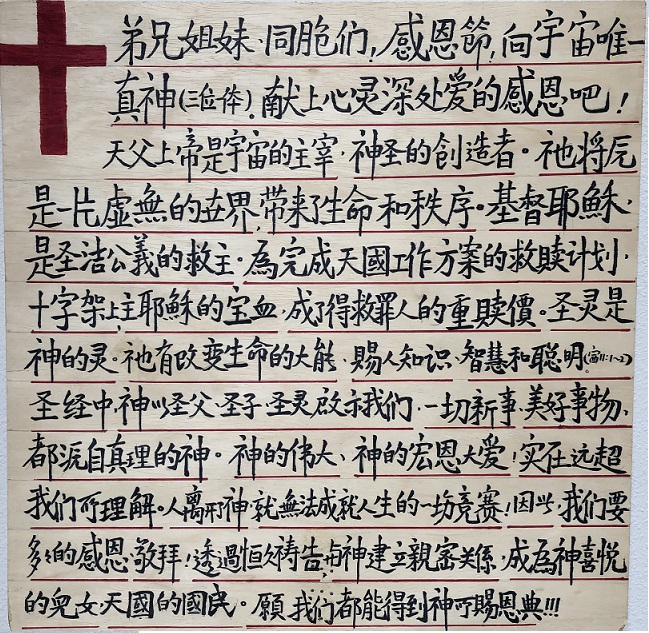 弟兄姐妹、同胞们!感恩節,向宇宙唯一
真神(三位一体),献上心灵深处爱的感恩吧!
天父上帝是宇宙的主宰,神圣的創造者。祂將原
是一片虛無的世界,带来了生命和秩序。基督耶穌,
是圣洁公義的救主。為完成天國工作方案的救赎计划,
十字架上主耶穌的宝血,成了得救罪人的重赎價。圣灵是
神的灵。祂有改变生命的大能,賜人知识、智慧和聪明(11:1~2)
圣经中,神以圣父、圣子、圣灵啟示我们,一切新事、美好事物,
都源自真理的神。神的伟大、神的宏恩大爱!实在远超
我们所理解。人離开神,就無法成就人生的一场竞赛!因此,我们要
多多的感恩、敬拜!透過恒久祷告,与神建立親密关係,成為神喜悦
的兒女、天國的國民。願我们都能得到神所賜恩典!!!